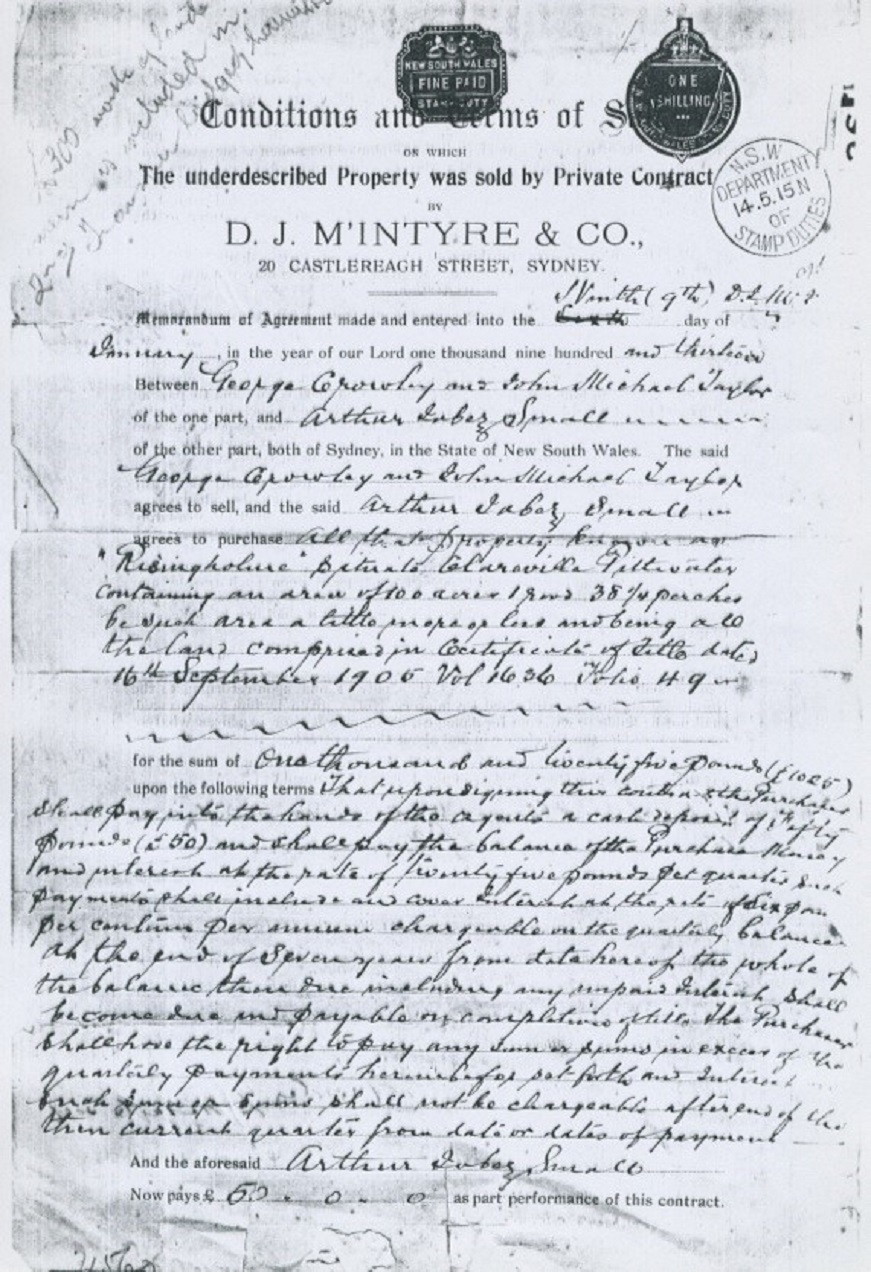 £300 worth of land
included in
NEW SOUTH WALES
FINE PAID
STAMP DUTY
ONE
SHILLING
Conditions and Terms of S
ON WHICH
The underdescribed Property was sold by Private Contract
BY
D. J. M'INTYRE & CO.,
20 CASTLEREAGH STREET, SYDNEY.
N.S.W
DEPARTMENT
14.5.15.N
OF
STAMP DUTIES
Ninth (9th)
Memorandum of Agreement made and entered into the Sixth day of
January, in the year of our Lord one thousand nine hundred and thirteen
Between George Crowley and John Michael Taylor
of the one part, and Arthur Jabez Small
of the other part, both of Sydney, in the State of New South Wales. The said
George Crowley and John Michael Taylor
agrees to sell, and the said Arthur Jabez Small
agrees to purchase All that property known as
"Risingholme" situate Clareville Pittwater
containing an area of 100 acres 1 rood 38 ¼ perches
be such area a little more or less and being all
the land comprised in Certificate of Title dated
16th September 1905 Vol 1636 Folio 49
for the sum of One thousand and twenty five pounds (£1025)
upon the following terms That upon signing this contract the Purchaser
shall pay into the hands of the agents a cash deposit of Fifty
pounds (£50) and shall pay the balance of the Purchase Money
and interest at the rate of twenty five pounds per quarter such
payments shall include and cover interest at the rate of six pounds
per centum per annum chargeable on the quarterly balance
At the end of Seven years from date hereof the whole of
the balance then due including any unpaid interest shall
become due and payable on completion of title. The Purchaser
shall have the right to pay any sum or sums in excess of the
quarterly payments hereinbefore set forth and Interest
such sum or sums shall not be chargeable after end of the
then current quarter from date or dates of payment
And the aforesaid Arthur Jabez Small
Now pays £ 50 . 0 . 0 as part performance of this contract.